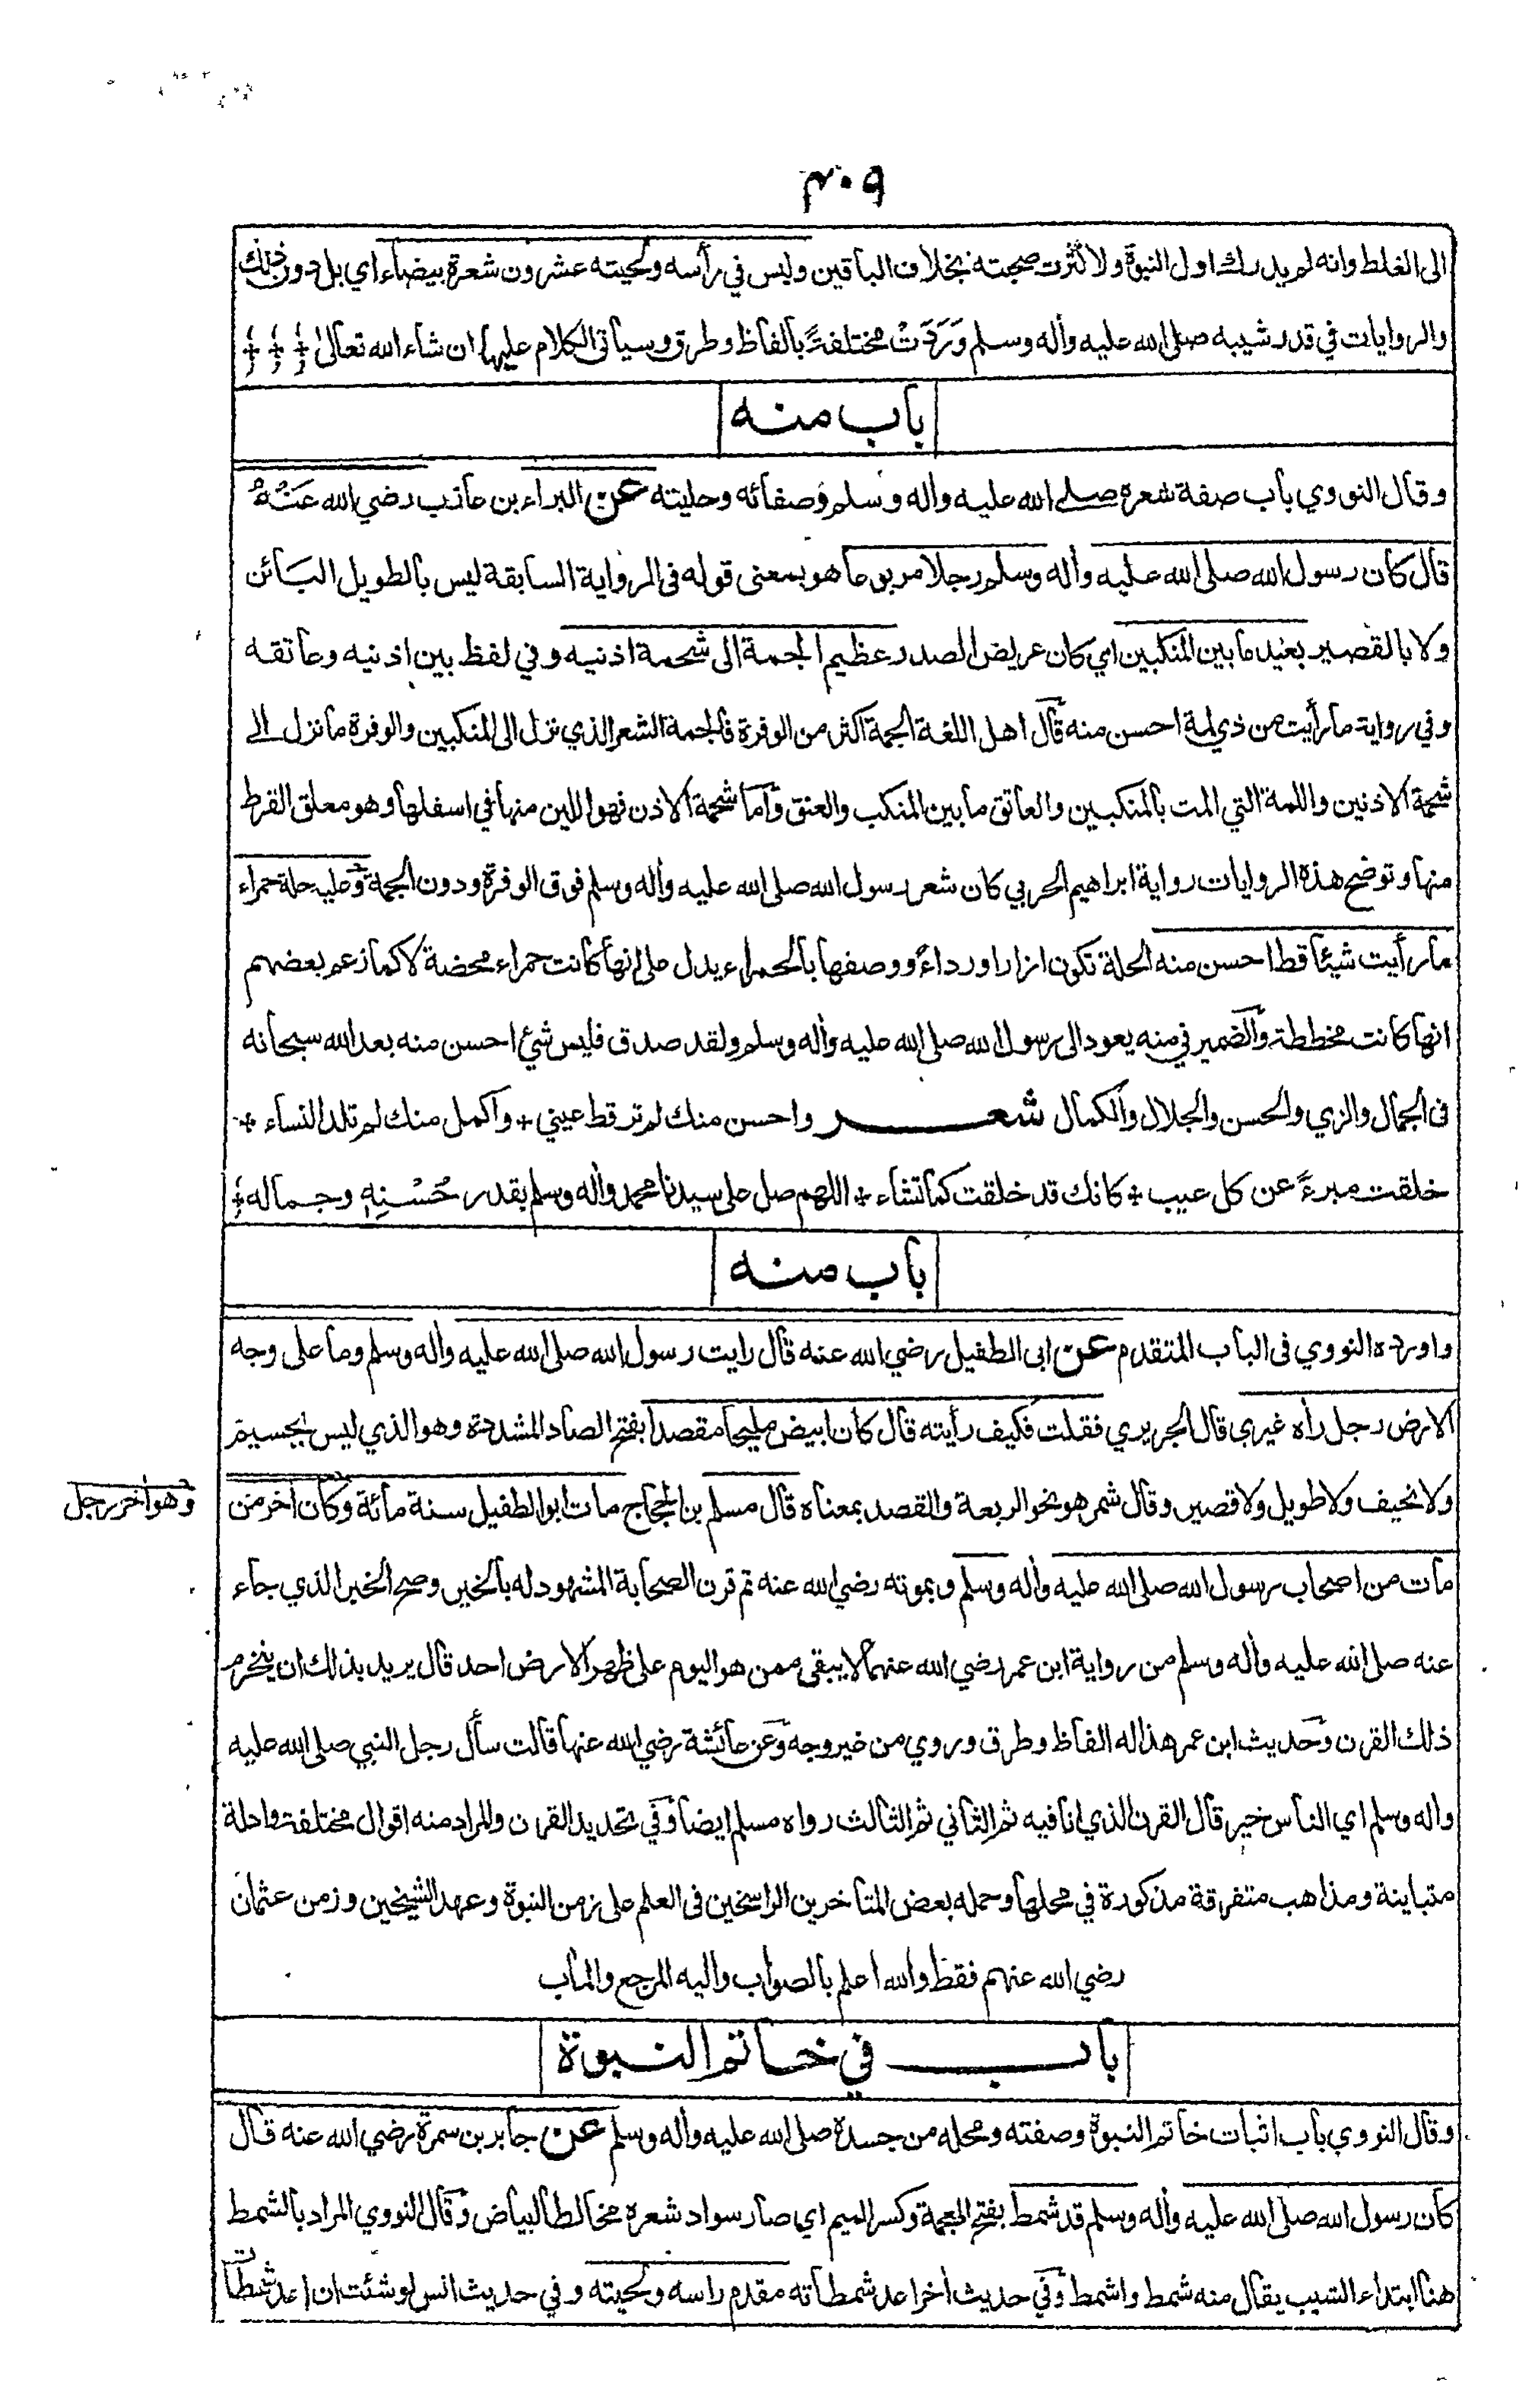 ٣٠٩
الى الغلط وانه لم يدرك اول النبوة ولا كثرت صحبته بخلاف الباقين وليس في رأسه ولحيته عشرون شعرة بيضاء اي بل دون ذلك
والروايات في قدر شيبه صلى الله عليه وأله وسلم وَرَدَتْ مختلفةً بألفاظ وطرق وسيأتى الكلام عليها ان شاء الله تعالىٰ
باب منه
وقال النووي باب صفة شعره صلے الله عليه واله وسلم وصفاته وحليته عن البراء بن عازب رضي الله عَنْهُ
قال كان رسول الله صلى الله عليه وأله وسلم رجلا مربوعا هو بمعنى قوله فى الرواية السابقة ليس بالطويل البَائن
ولا بالقصير بعيد ما بين المنكبين اي كان عريض الصدر عظيم الجمة الى شحمة اذنيه وفي لفظ بين اذنيه وعاتقه
وفي رواية ما رأيت من ذي لمة احسن منه قال اهل اللغة الجمة اكثر من الوفرة فالجمة الشعر الذي نزل الى المنكبين والوفرة ما نزل الے
شحمة الاذنين واللمة التي المت بالمنكبين والعاتق ما بين المنكب والعنق وأما شحمة الاذن فهو اللين منها في اسفلها وهو معلق القرط
منها وتوضح هذه الروايات رواية ابراهيم الحربي كان شعر رسول الله صلى الله عليه وأله وسلم فوق الوفرة ودون الجمة وعليه حلة حمراء
ما رأيت شيئا قط احسن منه الحلة تكون ازارا ورداءً ووصفها بالحمراء يدل على انها كانت حمراء محضة لا كما زعم بعضهم
انها كانت مخططة والضمير في منه يعود الى رسول الله صلى الله عليه وأله وسلم ولقد صدق فليس شئ احسن منه بعد الله سبحانه
فى الجمال والزي والحسن والجلال والكمال شعر واحسن منك لم تر قط عيني + واكمل منك لم تلد النساء +
خلقت مبرءً عن كل عيب + كانك قد خلقت كما تشاء + اللهم صل على سيدنا محمد وأله وسلم بقدر حُسْنِهٖ وجماله
باب منه
واورده النووي فى الباب المتقدم عن ابى الطفيل رضي الله عنه قال رايت رسول الله صلى الله عليه وأله وسلم وما على وجه
الارض رجل رأه غيري قال الجريري فقلت فكيف رأيته قال كان ابيض مليحا مقصدا بفتح الصاد المشددة وهو الذي ليس بجسيم
ولا نحيف ولا طويل ولا قصير وقال شمر هو نحو الربعة والقصد بمعناه قال مسلم بن الحجاج مات ابو الطفيل سنة مائة وكان أخر من
وهو أخر رجل
مات من اصحاب رسول الله صلى الله عليه وأله وسلم وبموته رضي الله عنه تم قرن الصحابة المشهود له بالخير وصح الخبر الذي جاء
عنه صلى الله عليه وأله وسلم من رواية ابن عمر رضي الله عنهما لا يبقى ممن هو اليوم على ظهر الارض احد قال يريد بذلك ان ينخرم
ذلك القرن وحديث ابن عمر هذا له الفاظ وطرق وروي من غير وجه وعن عائشة رضي الله عنها قالت سأل رجل النبي صلى الله عليه
واله وسلم اي الناس خير قال القرن الذي انا فيه ثم الثاني ثم الثالث رواه مسلم ايضا وفي تحديد القرن والمراد منه اقوال مختلفة وادلة
متباينة ومذاهب متفرقة مذكورة في محلها وحمله بعض المتأخرين الراسخين فى العلم على زمن النبوة وعهد الشيخين وزمن عثمان
رضي الله عنهم فقط والله اعلم بالصواب واليه المرجع والمأب
باب في خاتم النبوة
وقال النووي باب اثبات خاتم النبوة وصفته ومحله من جسده صلى الله عليه وأله وسلم عن جابر بن سمرة رضي الله عنه قال
كان رسول الله صلى الله عليه وأله وسلم قد شمط بفتح المعجمة وكسر الميم اي صار سواد شعره مخالطا لبياض وقال النووي المراد بالشمط
هنا ابتداء الشيب يقال منه شمط واشمط وفي حديث أخر اعد شمطاته مقدم راسه ولحيته وفي حديث انس لو شئت ان اعد شمطات